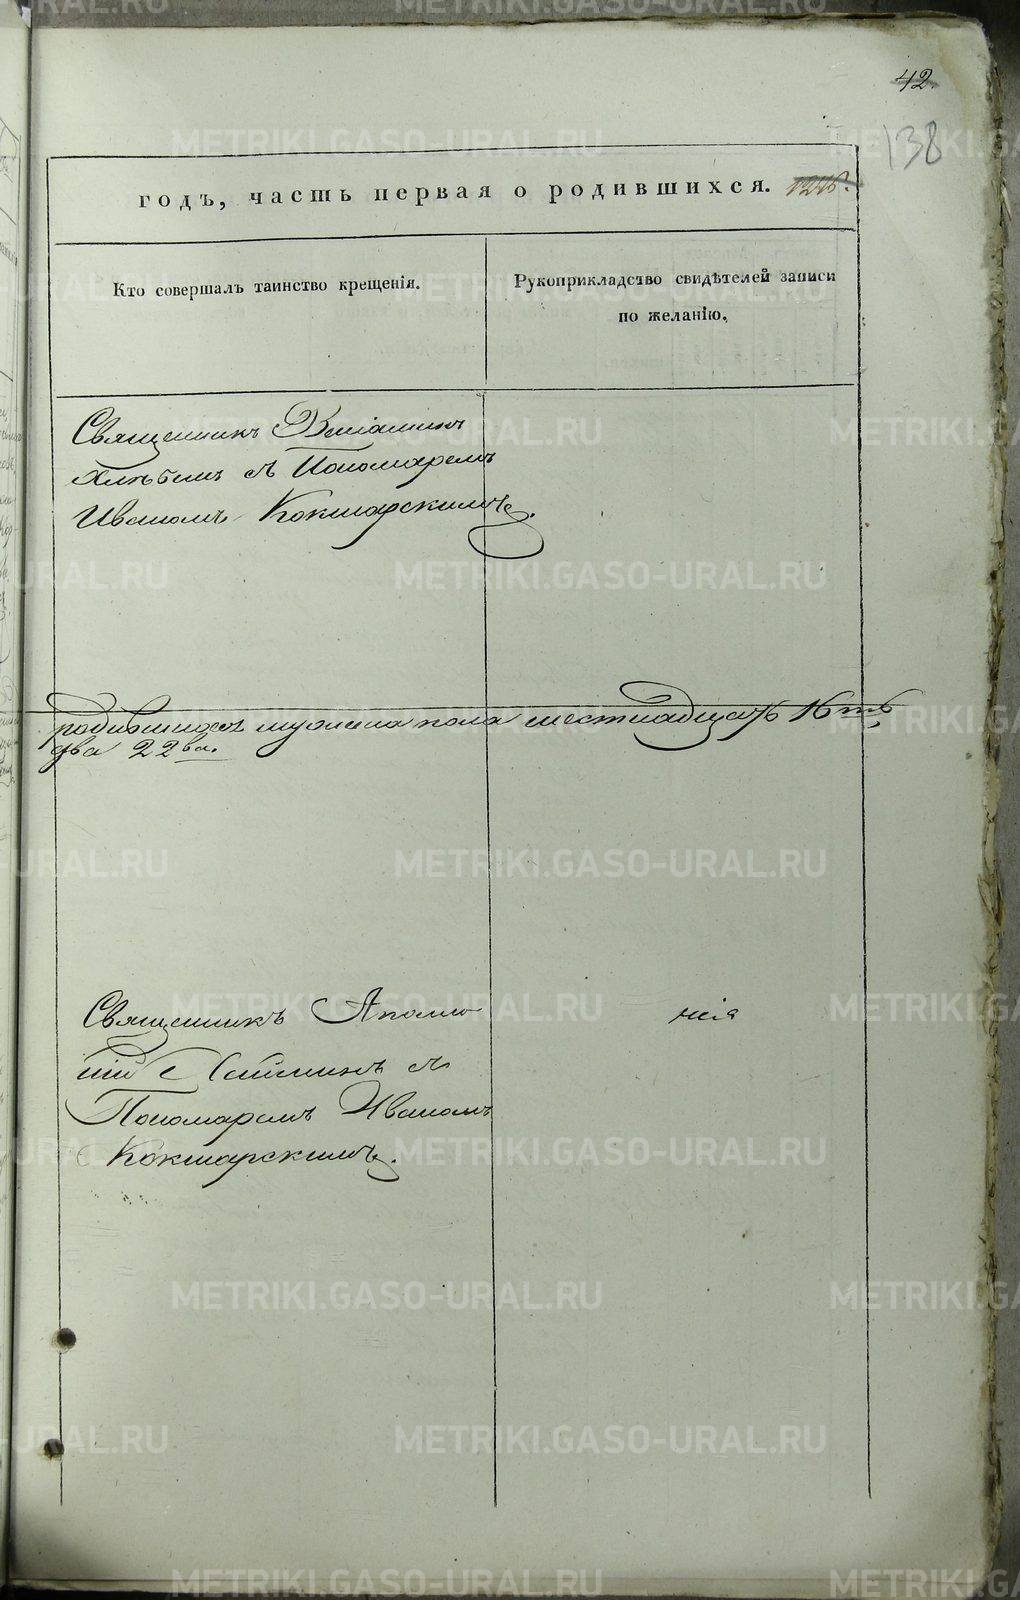 42.
138
годъ, часть первая о родившихся.
Кто совершалъ таинство крещенія.
Рукоприкладство свидѣтелей записи
по желанію.
Священникъ Веніаминъ
Хлѣбинъ съ Пономаремъ
Иваномъ Кокшарскимъ.
родившихся мужеска пола шестнадцать 16ть
два 22ва.
Священникъ Аполло
ній съ
Пономаремъ Иваномъ
Кокшарскимъ.
METRIKI.GASO-URAL.RU